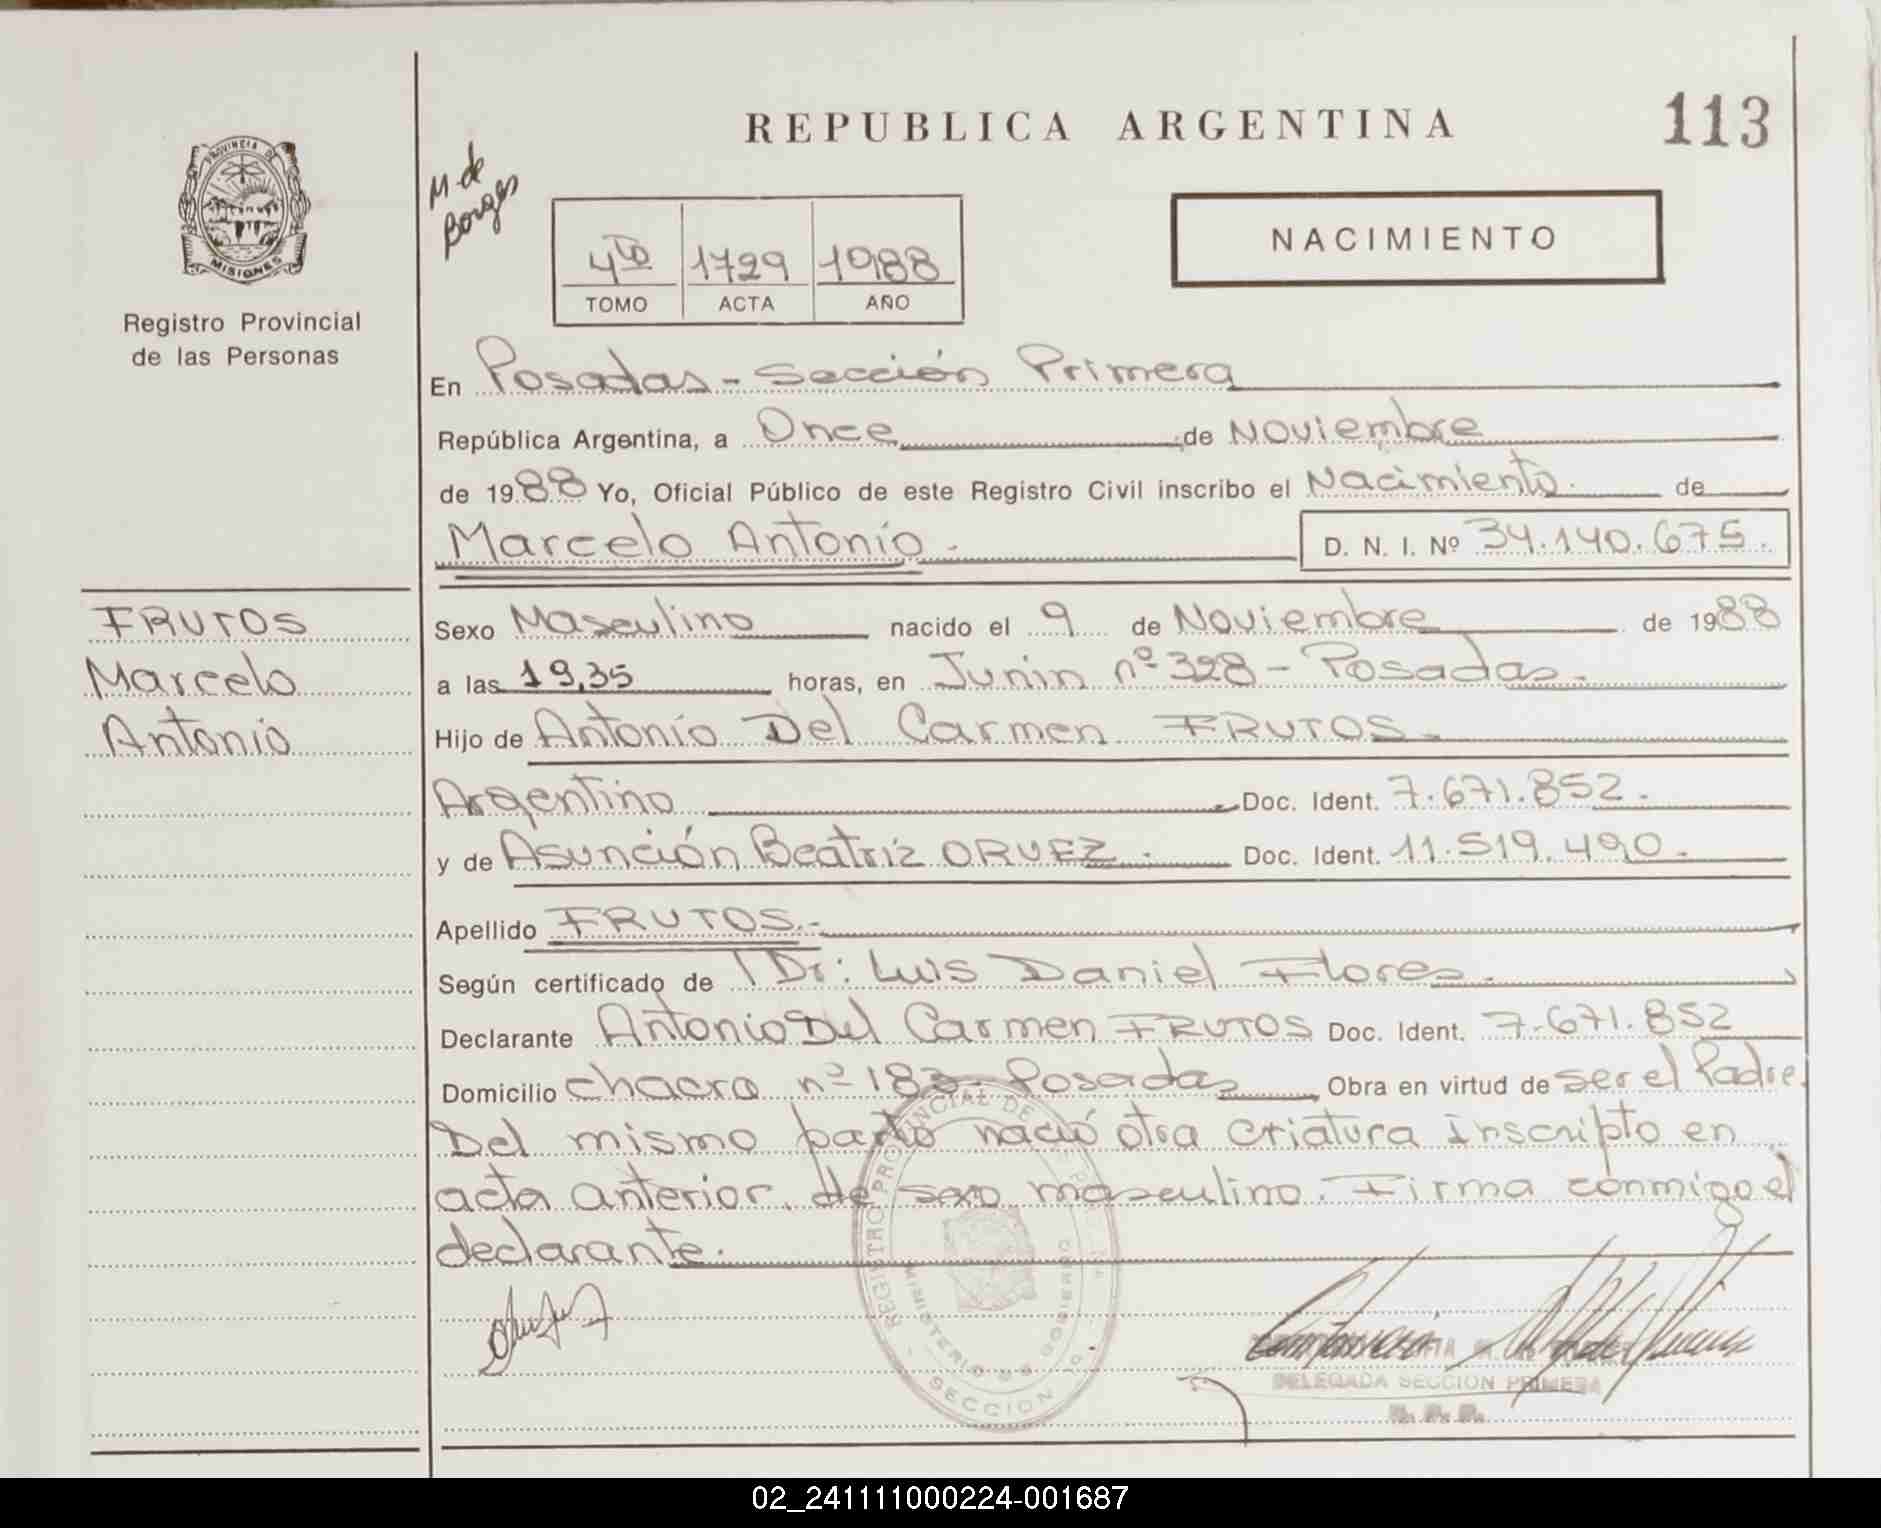 REPUBLICA ARGENTINA
113
PROVINCIA DE
MISIONES
Registro Provincial
de las Personas
M. de
Borges
4to 1729 1988
TOMO ACTA AÑO
NACIMIENTO
En Posadas - Sección Primera
República Argentina, a Once de Noviembre
de 1988 Yo, Oficial Público de este Registro Civil inscribo el Nacimiento de
Marcelo Antonio.
D. N. I. Nº 34.140.675.
FRUTOS
Marcelo
Antonio
Sexo Masculino nacido el 9 de Noviembre de 1988
a las 19,35 horas, en Junin nº 328 - Posadas.
Hijo de Antonio Del Carmen FRUTOS.
Argentino Doc. Ident. 7.671.852.
y de Asunción Beatriz ORUEZ. Doc. Ident. 11.519.490.
Apellido FRUTOS.-
Según certificado de Dr: Luis Daniel Flores.
Declarante Antonio Del Carmen FRUTOS Doc. Ident. 7.671.852
Domicilio chacra nº 183 - Posadas Obra en virtud de ser el Padre.
Del mismo parto nació otra criatura inscripto en
acta anterior, de sexo masculino. Firma conmigo el
declarante.
REGISTRO PROVINCIAL DE
MINISTERIO DE GOBIERNO
SECCION
DELEGADA SECCION PRIMERA
02_241111000224-001687